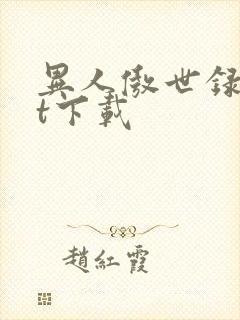 異人傲世録
t下載
趙紅霞